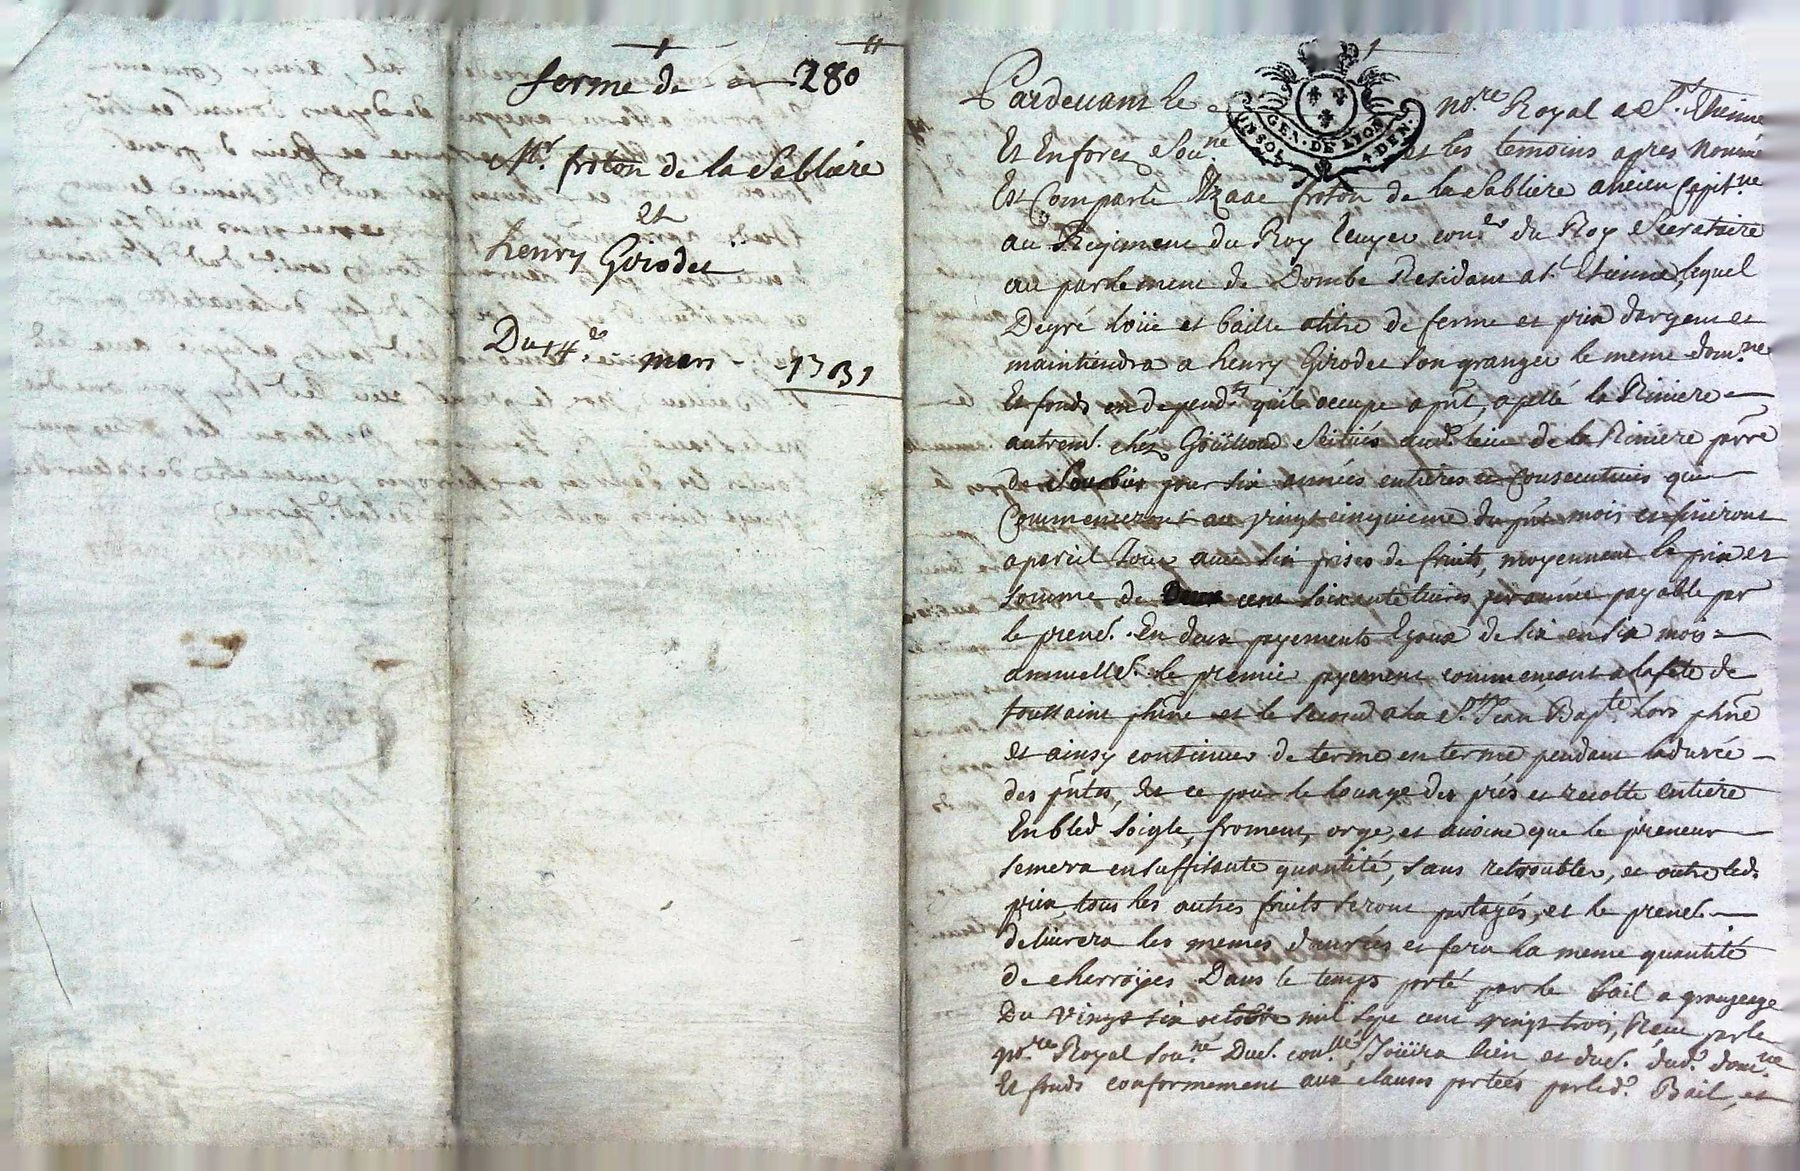 ferme de 280
Mr. froton de la Sabliere
et
henry Girodet
Du 14e mars 1731
Pardevant le no.re Royal a St. Etienne
GEN. DE LYON
UN SOL 4 DEN.
Et Enforez Sou.né et les temoins apres nommé
Est Comparu Izaac froton de la Sabliere ancien Capit.ne
au Regiment du Roy Ecuyer con.er du Roy Secretaire
au parlement de Dombe Residant a St. Etienne, lequel
Degré loüe et baille atitre de ferme et prix dargent et
maintiendra a henry Girodet son granger le meme dom.ne
Et fonds en depend.ts qu'il occupe a pñt, apellé la Riviere
autrem.t chéz Goüilloud scitués aud. lieu de la Riviere pärre
de Sorbier pour six années entieres et consecutives qui
Commenceront au vingt cinquieme du pñt mois et finiront
apareil Jour avec six prises de fruits, moyennant le prix et
somme de cent soixante livres par année payable par
le prene.r En deux payements Egaux de six en six mois
annuellem.t le premier payement commencant a la fete de
toussaint phñe et le second a la St. Jean Bap.te lors phñe
et ainsy continuer de terme en terme pendant la durée
des pñtes, Et ce pour le louage des prés et recolte entiere
En bled soigle, froment, orge, et avoine que le preneur
semera en suffisante quantité, sans retroubler, et outre led.
prix, tous les autres fruits seront partagés, et le prene.r
delivrera les memes danrées et fera la meme quantité
de cherroyes Dans le temps porté par le Bail a grangeage
Du vingt six octobre mil sept cent vingt trois, Reçu par le
no.re Royal sou.né Jouira bien et dud. dom.ne
Et fonds conformement aux clauses portées par led. Bail, et